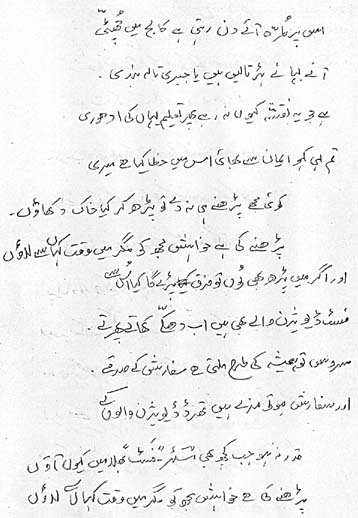 اس پر طُرّہ آئے دن رہتی ہے کالج میں چُھٹّی
آئے بہانے ہڑتالیں ہیں یا جبری تالہ بندی
ہے جو یہ نقشہ کیوں نہ رہے پھر تعلیم یہاں کی ادھوری
تم ہی کہو ایمان سے بھائی اس میں خطا کیا ہے میری
کوئی مجھے پڑھنے ہی نہ دے تو پڑھ کر کیا خاک دکھاؤں۔
پڑھنے کی ہے خواہش مجھ کو مگر میں وقت کہاں سے لاؤں
اور اگر میں پڑھ بھی لُوں تو فرق پڑے گا کیا اُس سے
فسٹ ڈیویژن والے بھی ہیں اب دھکّے کھاتے پھرتے۔
سروس تو ہمیشہ کی طرح ملتی ہے سفارش کے صدقے
اور سفارش ہو تو مزے ہیں تھرڈ ڈیویژن والوں کے
قدر نہ ہو جب کچھ بھی تو پھر فسٹ بھلا میں کیوں آؤں
پڑھنے کی ہے خواہش مجھ کو مگر میں وقت کہاں سے لاؤں